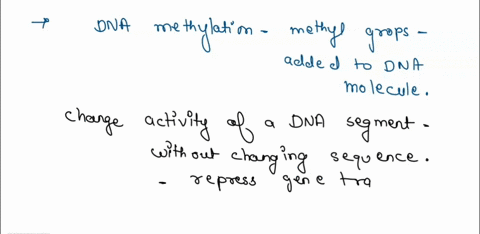 → DNA methylation - methyl grops -
added to DNA
molecule.
change activity of a DNA segment -
without changing sequence.
- repress gene tra